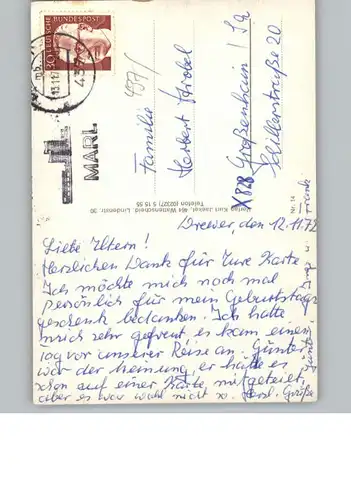 DEUTSCHE BUNDESPOST
30
MARL
Familie
Herbert Strobel
X 828 Großenhain / Sa
Schillerstraße 20
Verlag Kurt Jaekel, 464 Wattenscheid, Lindenstr. 30
Telefon (02327) 5 15 55
Nr. 14
Drewer, den 12.11.72
Liebe Eltern!
Herzlichen Dank für Eure Karte
Ich möchte mich noch mal
persönlich für mein Geburtstags
geschenk bedanken. Ich hatte
mich sehr gefreut es kam einen
Tag vor unserer Reise an. Günter
war der meinung, er hätte es
schon auf einer Karte mitgeteilt,
aber es war wohl nicht so. Herzl. Grüße